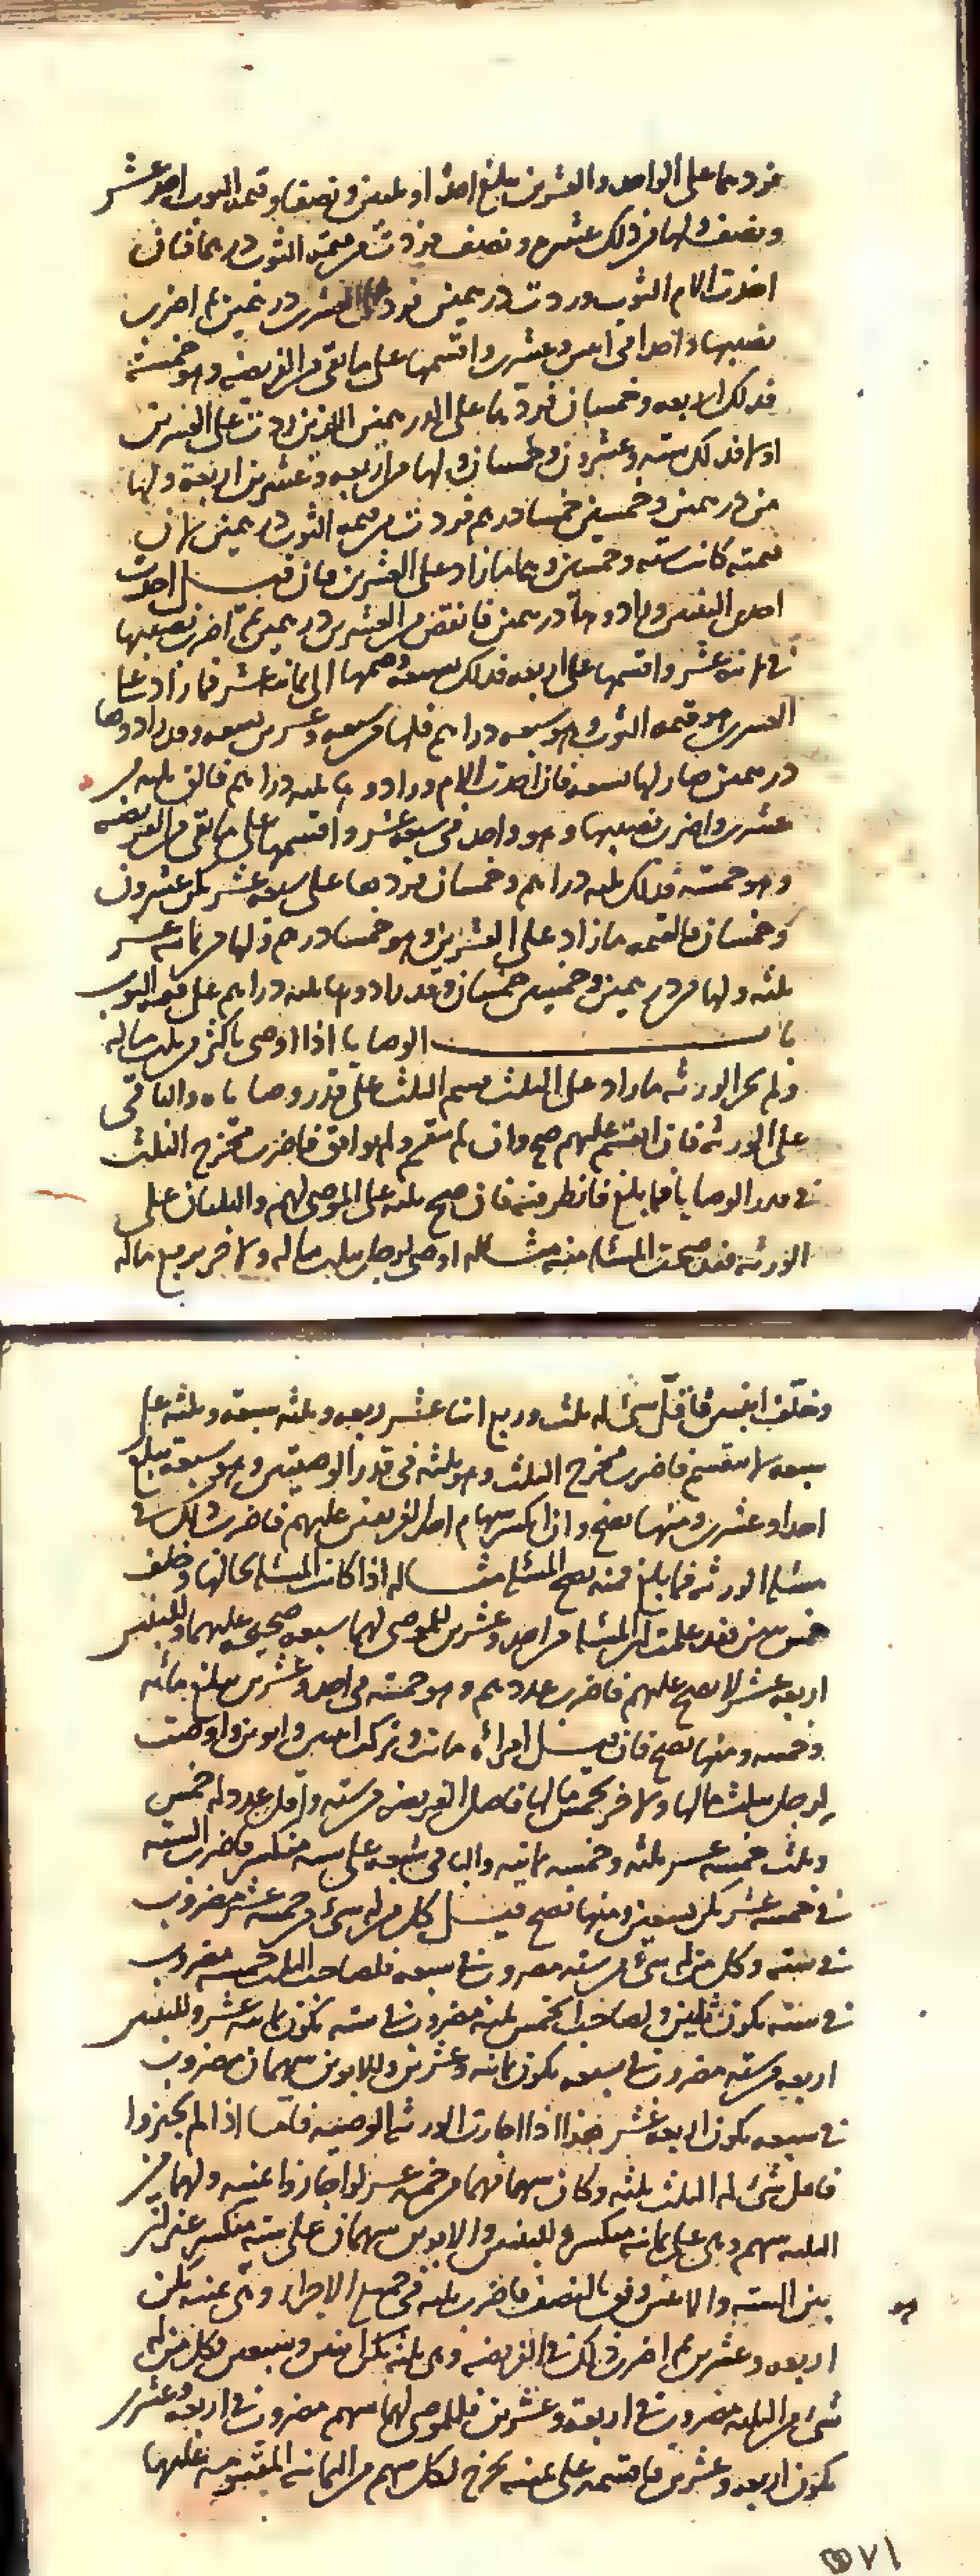 فزدهما على الواحد والعشرين يبلغ احدا وثلثين ونصفا وقيمة الثوب احد عشر
ونصف ولها من ذلك عشرة ونصف فزدت من قيمة الثوب درهما فان
اخذت الام الثوب وردت درهمين فزد على العشرين درهمين ثم اضرب
نصيبها واحدا في اثنين وعشرين واقسمها على ما بقي من الفريضة وهو خمسة
فذلك اربعة وخمسان فزدها على الدرهمين اللذين زدت على العشرين
اولا فذلك ستة وعشرون وخمسان ولها من اربعة وعشرين اربعة ولها
من درهمين وخمسين خمسا درهم فردت من قيمة الثوب درهمين لان
قيمته كانت ستة وخمسين وهما ما زاد على العشرين فان قيل اخذت
احدى البنتين وزادوها درهمين فانقص من العشرين درهمين ثم اضرب نصيبها
في ثمانية عشر واقسمها على اربعة فذلك تسعة وضمها الى ثمانية عشر فما زاد على
العشرين هو قيمة الثوب وهو سبعة دراهم فلها من سبعة وعشرين تسعة وقد زادوها
درهمين صار لها تسعة فان اخذت الام وزادوها ثلثة دراهم فالق ثلثة من
عشرين واضرب نصيبها وهو واحد في سبعة عشر واقسمها على ما بقي من الفريضة
وهو خمسة فذلك ثلثة دراهم وخمسان فزدها على سبعة عشر يكن عشرون
وخمسان فالقيمة ما زاد على العشرين وهو خمسا درهم ولها من ثمانية عشر
ثلثة ولها من درهمين وخمسين خمسان وقد زادوها ثلثة دراهم على قيمة الثوب
باب الوصايا اذا اوصى باكثر من ثلث ماله
ولم يجز الورثة ما زاد على الثلث قسم الثلث على قدر وصاياه والباقي
على الورثة فان انقسم عليهم صح وان لم ينقسم ولم يوافق فاضرب مخرج الثلث
في عدد الوصايا فما بلغ فانظر فيه فان صح ثلثه على الموصى لهم والثلثان على
الورثة فقد صحت المسئلة منه مثاله اوصى لرجل بثلث ماله ولاخر بربع ماله
وخلف ابنين فاقل شيء له ثلث وربع اثنا عشر ربعه وثلثه سبعة وثلثه على
سبعة لا ينقسم فاضرب مخرج الثلث وهو ثلثة في قدر الوصيتين وهو سبعة يبلغ
احدا وعشرين ومنها تصح وان انكسر سهام اهل الفريضة عليهم فاضرب ذلك في
مسئلة الورثة فما بلغ فمنه تصح المسئلة مثاله اذا كانت المسئلة بحالها وخلف
خمس بنين فقد علمت ان المسئلة من احد وعشرين للموصى لهما سبعة صحيحة عليهما وللبنين
اربعة عشر لا تصح عليهم فاضرب عددهم وهو خمسة في احد وعشرين يبلغ مائة
وخمسة ومنها تصح فان قيل امرأة ماتت وتركت ابنتين وابوين واوصت
لرجل بثلث مالها ولاخر بخمس مالها فاصل الفريضة من ستة واقل عدد له خمس
وثلث خمسة عشر ثلثه وخمسه ثمانية والباقي سبعة على ستة منكسر فاضرب الستة
في خمسة عشر يكن تسعين ومنها تصح قيل كل من له شيء من خمسة عشر مضروب
في ستة وكل من له شيء من ستة مضروب في سبعة فلصاحب الثلث خمسة مضروب
في ستة يكون ثلثين ولصاحب الخمس ثلثة مضروب في ستة يكون ثمانية عشر وللبنتين
اربعة من ستة مضروب في سبعة يكون ثمانية وعشرين وللابوين سهمان مضروب
في سبعة يكون اربعة عشر هذا اذا اجازت الورثة الوصية فاما اذا لم يجيزوا
فاقل شيء له الثلث ثلثة وكان سهامهما من خمسة عشر لو اجازوا ثمانية ولهما من
الثلثة سهم وهي على ثمانية منكسر وللبنتين والابوين سهمان على ستة منكسر غير ان
بين الستة والاثنين وفق بالنصف فاضرب ثلثة في جميع الاجزاء وهي ثمانية يكن
اربعة وعشرين ثم اضرب ذلك في الفريضة وهي ثلثة يكن اثنين وسبعين وكل من له
شيء من الثلثة مضروب في اربعة وعشرين فللموصى لهما سهم مضروب في اربعة وعشرين
يكون اربعة وعشرين فاقسمه على ثمانية يخرج لكل سهم من الثمانية المقسومة عليها
٧١